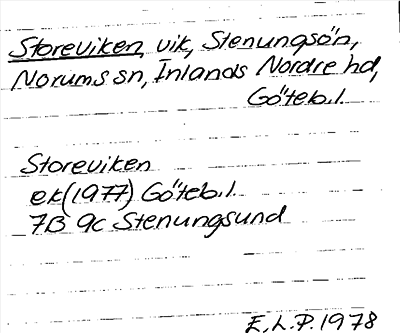 Storeviken, vik, Stenungsön,
Norums sn, Inlands Nordre hd,
Göteb.l.
Storeviken
ek(1977) Göteb.l.
7B 9c Stenungsund
E.L.P. 1978